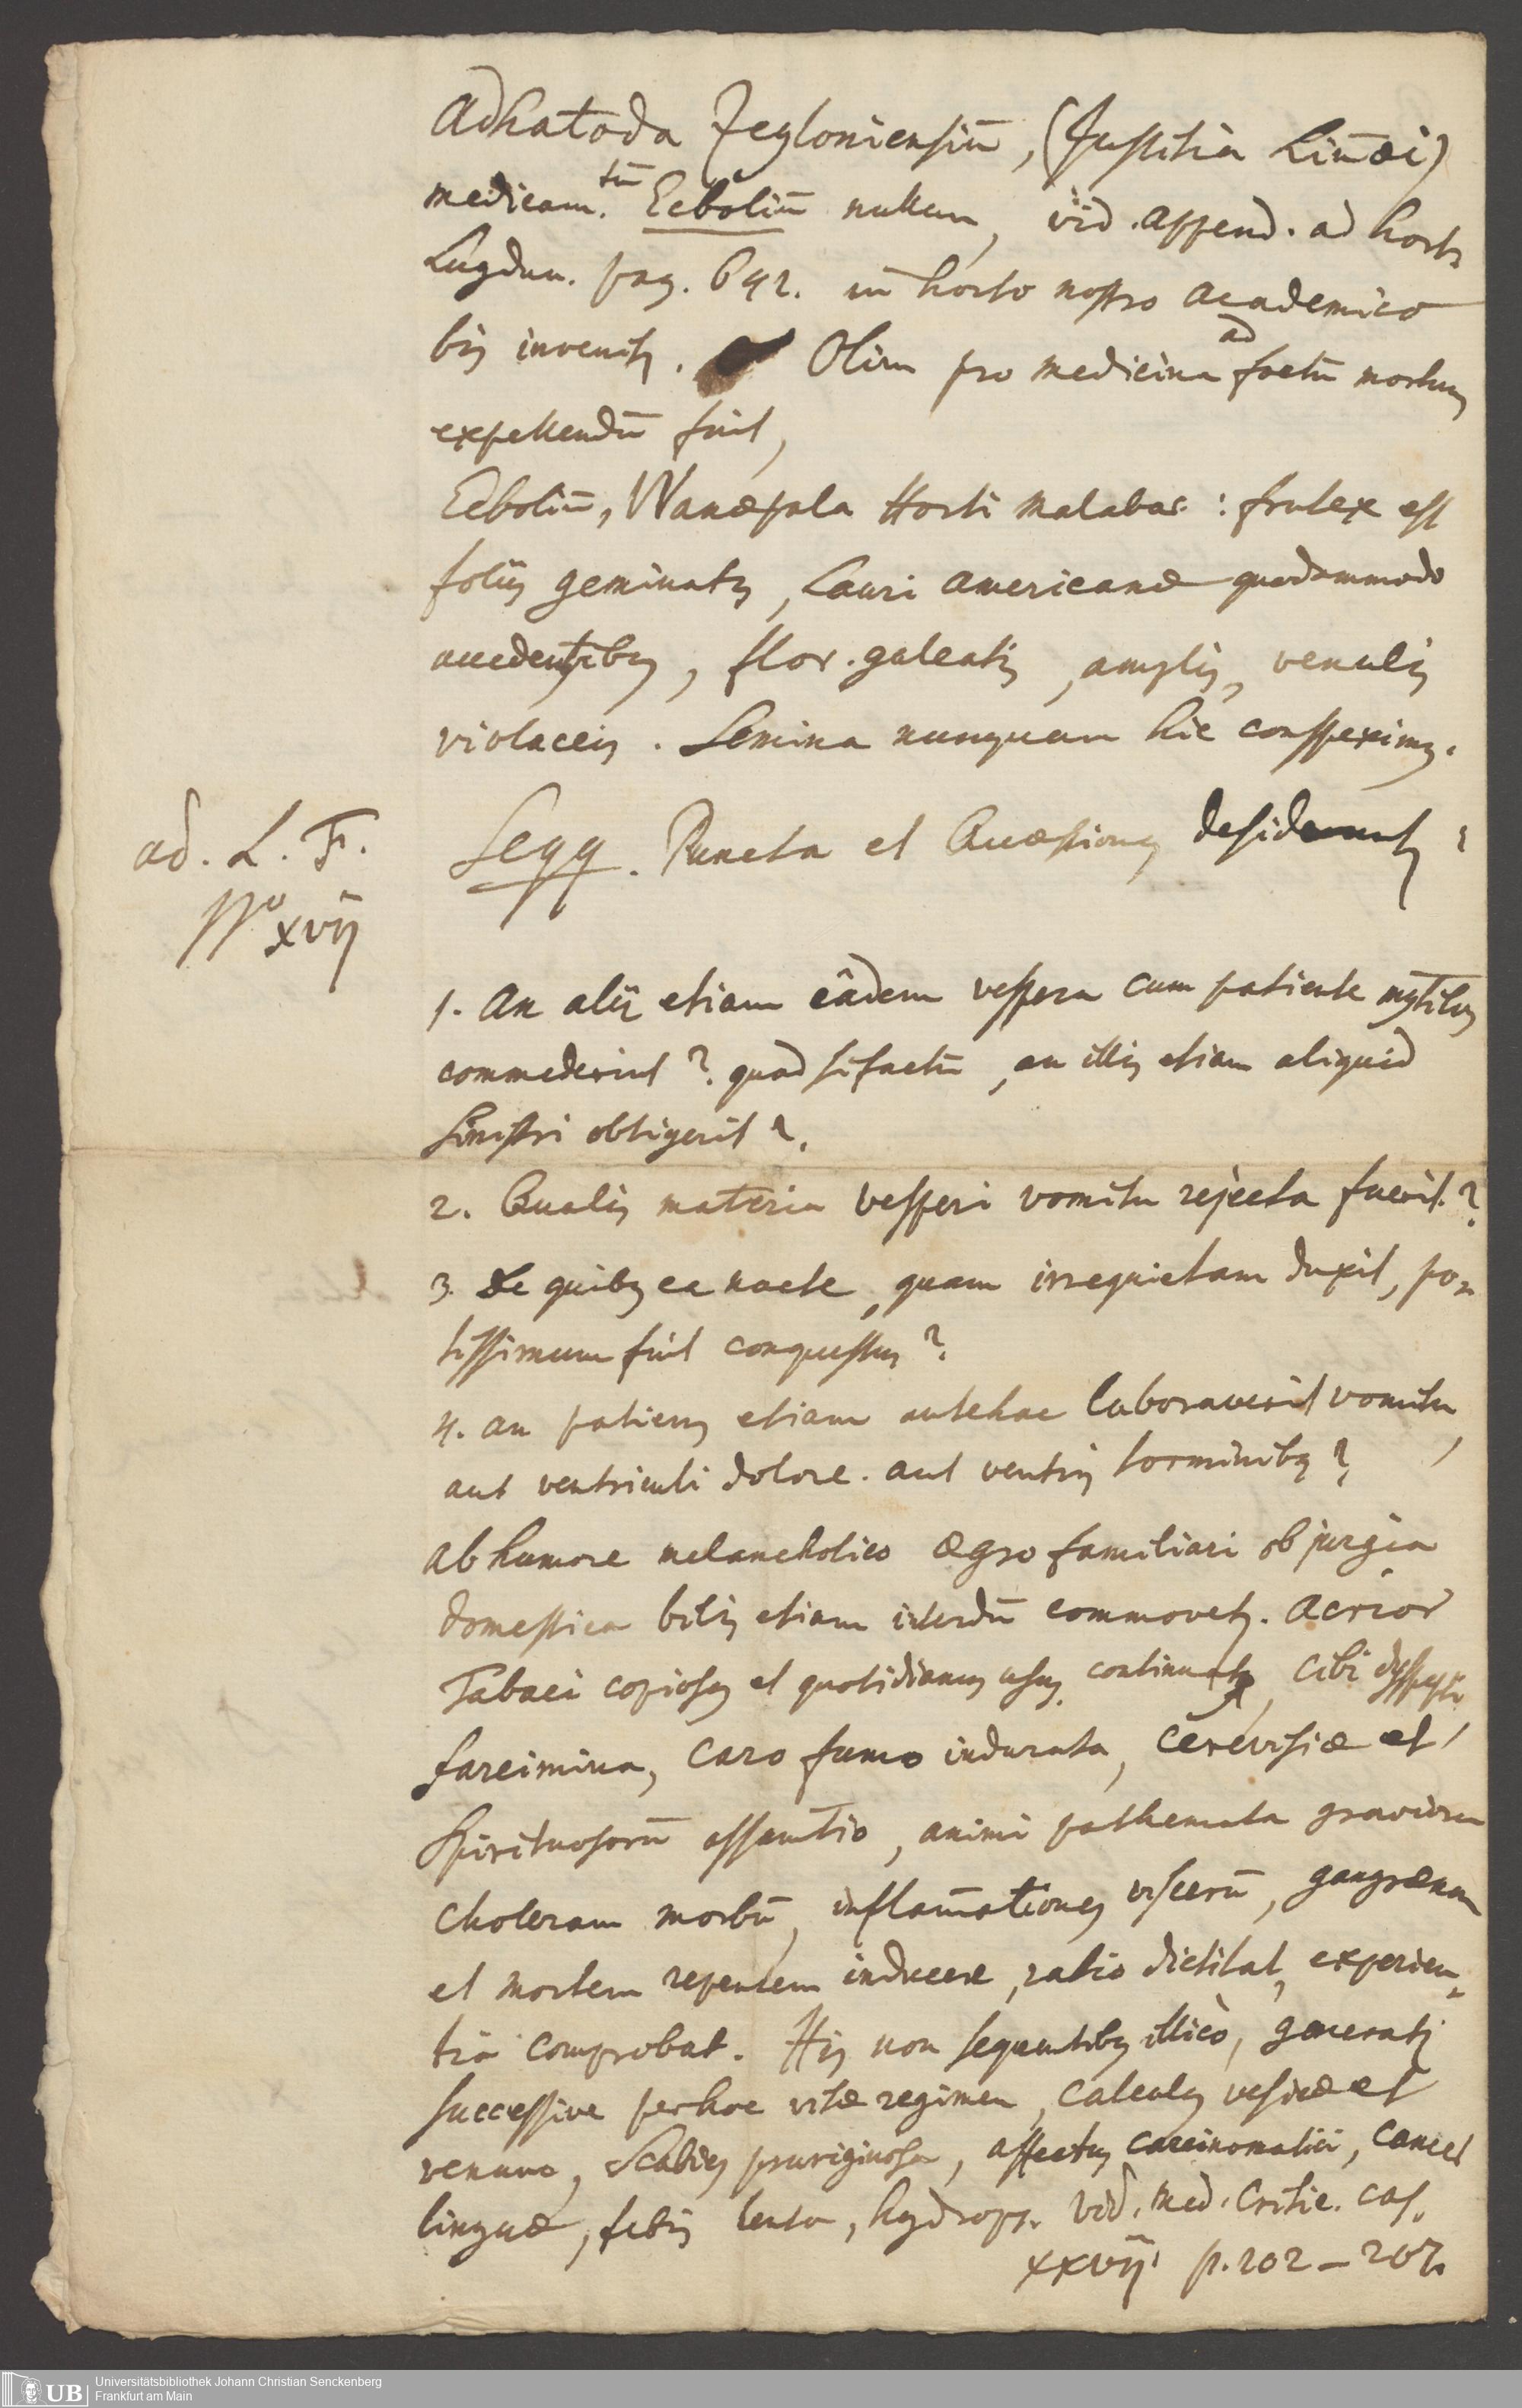 Adhatoda Zeyloniensiū, (Justitia Lin̄æi)
medicam.tū Ecboliū nullum, vid. append. ad hort.
Lugdun. pag. 642. in horto nostro academico
bis invenitʒ. Olim pro medicina ad foetū mortuū
expellendū fuit,
Ecboliū, Wanæpala Horti malabar: frutex est
foliis geminatis, Lauri americanæ quodammodo
accedentibꝫ, flor. galeatis, amplis, venulis
violaceis. Semina nunquam hic conspeximꝫ.
ad. L. F.
No xvij
Seqq. Puncta et Quæstiones desiderantʒ:
1. An alij etiam eâdem vespera cum patiente mytilos
commederint? quod si factū, an illis etiam aliquid
sinistri obtigerit?
2. Qualis materia vesperi vomitu rejecta fuerit?
3. De quibꝫ ea nocte, quam irrequietam duxit, po-
tissimum fuit conquestus?
4. an patiens etiam antehac laboraverit vomitu,
aut ventriculi dolore. aut ventris torminibꝫ?
ab humore melancholico ægro familiari ob jurgia
domestica bilis etiam interdū commovetʒ. Acrior
Tabaci copiosus et quotidianus usus continuatʒ, cibi dyspepti
farcimina, caro fumo indurata, cerevisiæ et
Spirituosorū assumtio, animi pathemata graviora
choleram morbū, inflam̄ationes viscerū, gangrænam
et mortem repentem inducere, ratio dictitat, experien-
tia comprobat. His non sequentibꝫ illicò, generatʒ
successive per hoc vitæ regimen, calculus vesicæ et
renum, Scabies pruriginosa, affectus carcinomatici, cancer
linguæ, febris lenta, hydrops. Vid. Med. Critic. cas.
xxvij. p. 202 – 207.
Universitätsbibliothek Johann Christian Senckenberg
Frankfurt am Main
UB